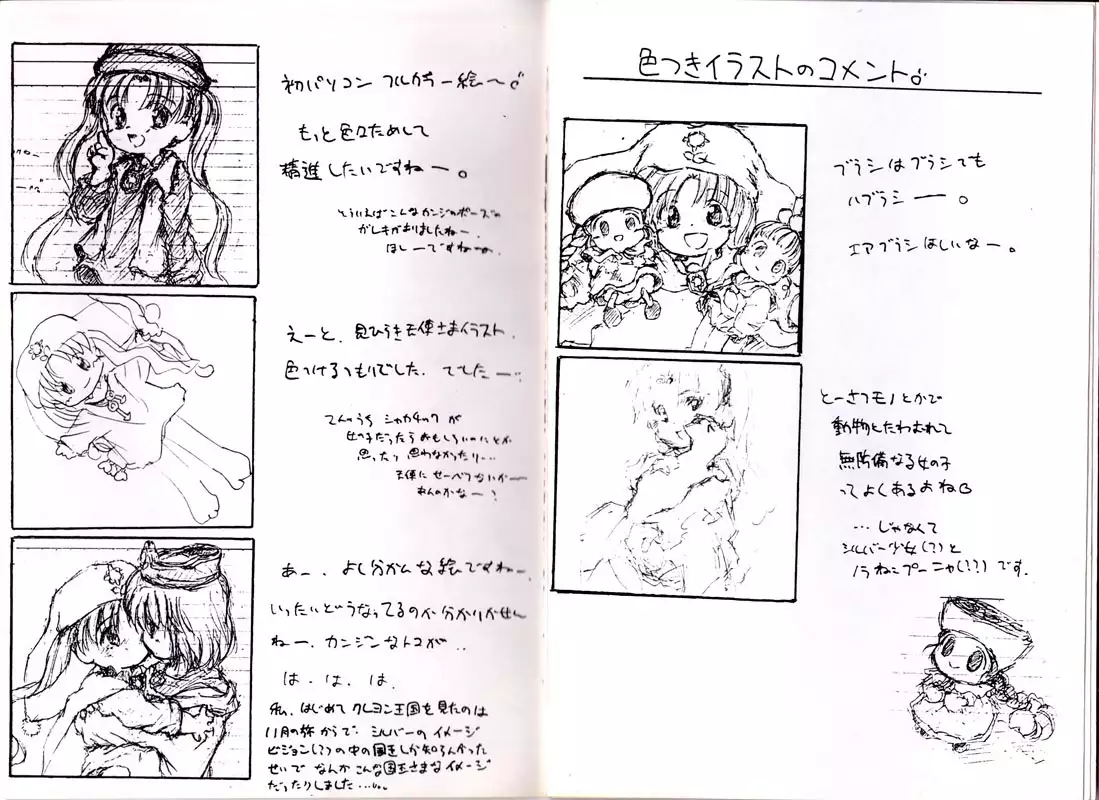 色つきイラストのコメント。
ブラシはブラシでも
ハブラシ ー 。
エアブラシほしいなー。
とーさつモノとかで
動物とたわむれて
無防備なる女の子
ってよくあるおね
…じゃなくて
シルバー少女(?)と
ノラねこプーニャ(??)です.
初パソコン フルカラー絵〜。
もっと色々ためして
精進したいですねー。
そういえばこんなカンジのポーズの
ガレキがありましたねー.
ほしーですねー。
えーと、見ひらき天使さまイラスト.
色つけるつもりでした. でしたー..
てんのうち シャカチック が
女の子だったらおもしろいのにとか
思ったり 思わなかったり...
天使に セーベツ ないかー
あんのかなー?
あー、よし分かんな絵ですねー
いったいどうなってるのか分かりませんねー
ねー、カンジンなトコが..
は.は.は.
私、はじめて クレヨン王国を見たのは
11月の旅からで、シルバーのイメージ
ビジョン(?)の中の国王しか知らんかった
せいで なんか こんな国王さまなイメージ
だったりしました...。